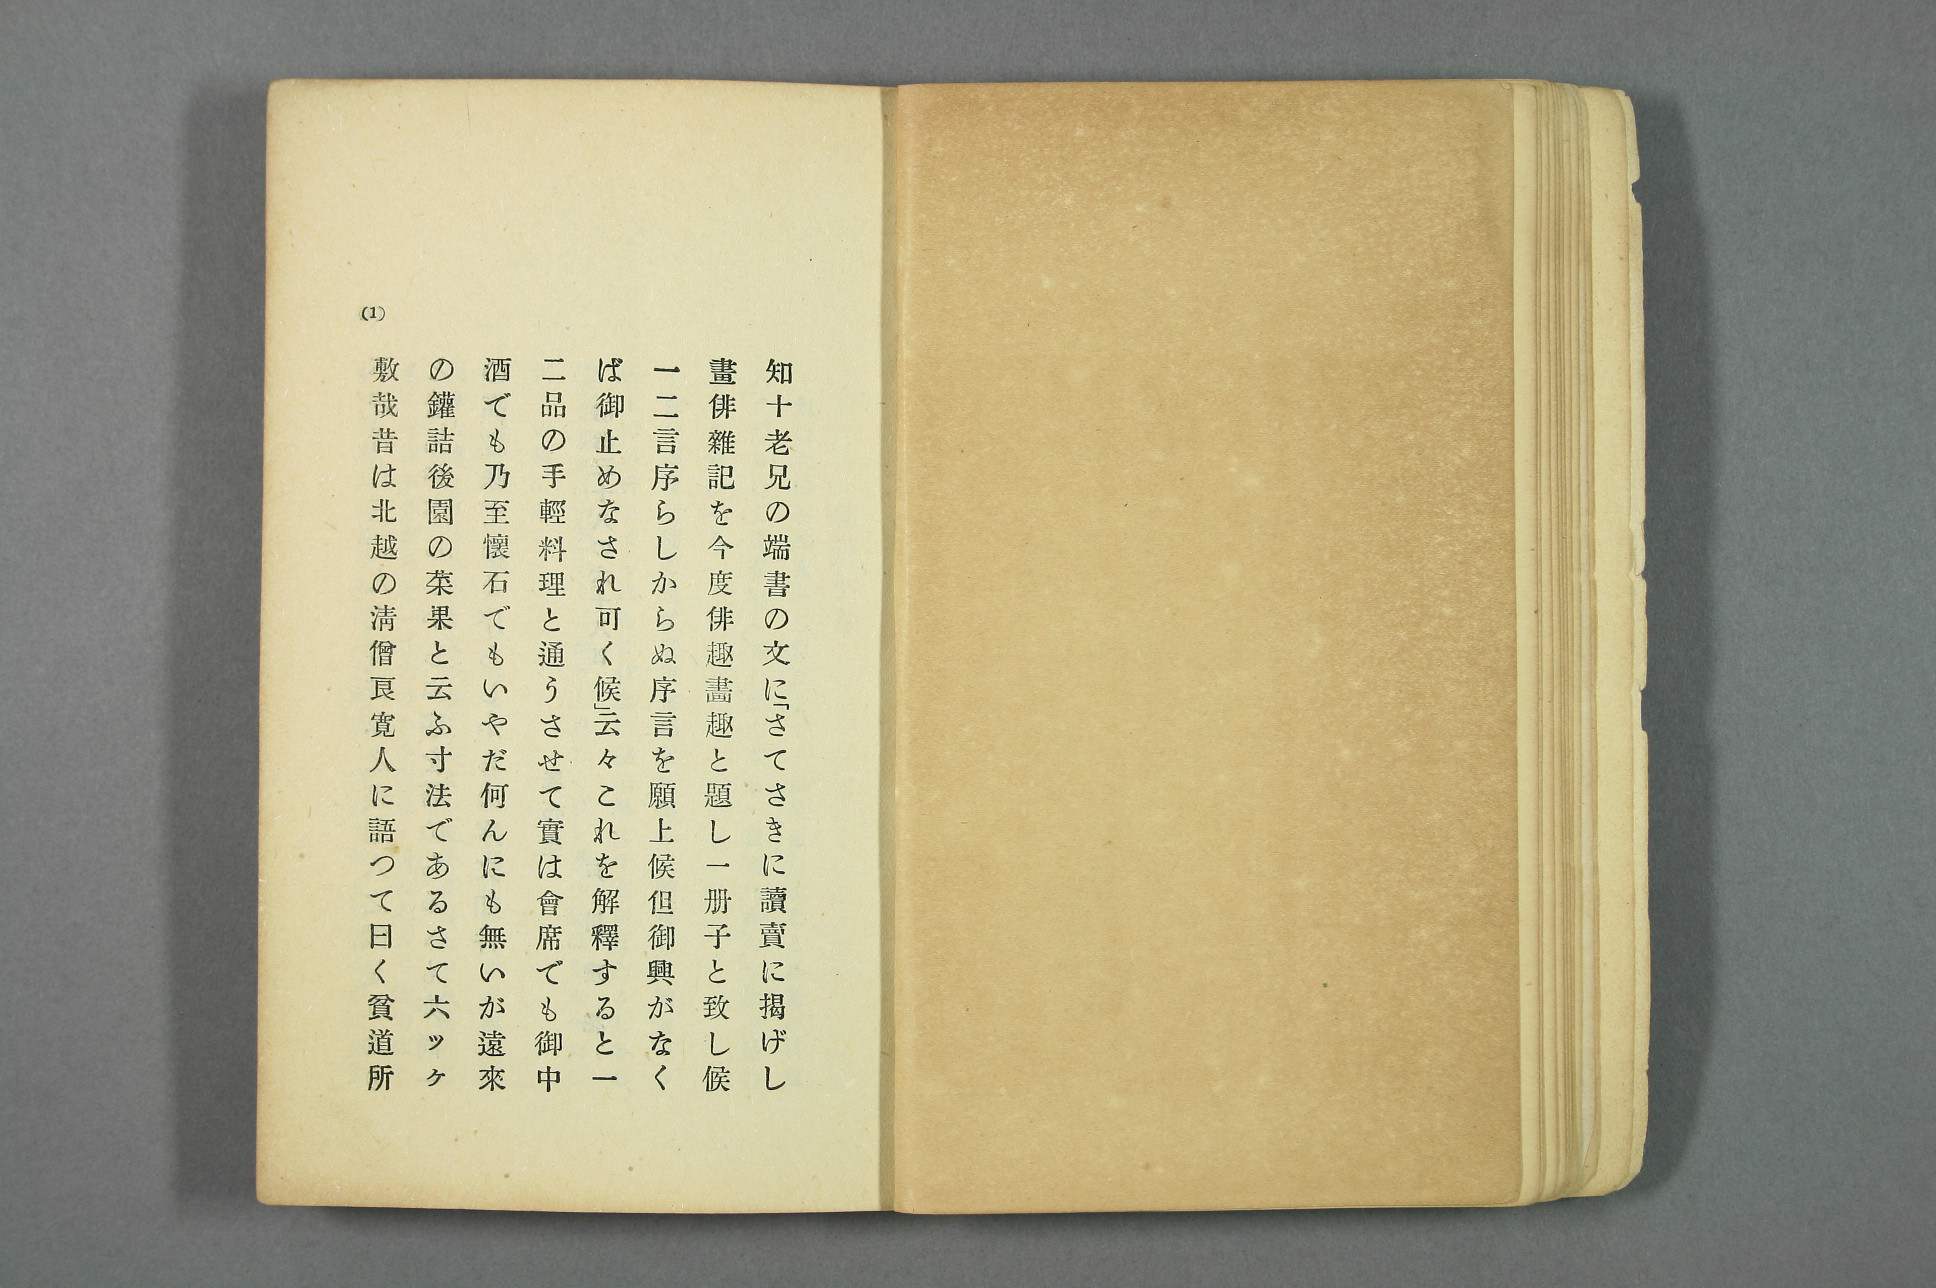 知十老兄の端書の文に「さてさきに讀賣に掲げし
畫俳雜記を今度俳趣畵趣と題し一册子と致し候
一二言序らしからぬ序言を願上候但御興がなく
ば御止めなされ可く候」云々これを解釋すると一
二品の手輕料理と通うさせて實は會席でも御中
酒でも乃至懷石でもいやだ何んにも無いが遠來
の鑵詰後園の菜果と云ふ寸法であるさて六ッケ
敷哉昔は北越の淸僧良寛人に語つて曰く貧道所
(1)